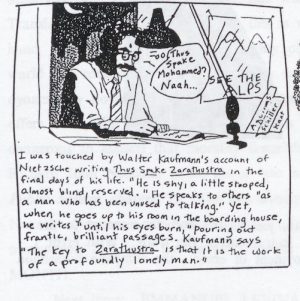 "Thus
Spake
Mohammed?
Naah...
SEE THE
LPS
I was touched by Walter Kaufmann's account of
Nietzsche writing Thus Spake Zarathustra, in the
final days of his life. "He is shy, a little stooped,
almost blind, reserved." He speaks to others "as
a man who has been unused to talking." Yet,
when he goes up to his room in the boarding house,
he writes "until his eyes burn," pouring out
frantic, brilliant passages. Kaufmann says
"The key to Zarathustra is that it is the work
of a profoundly lonely man."